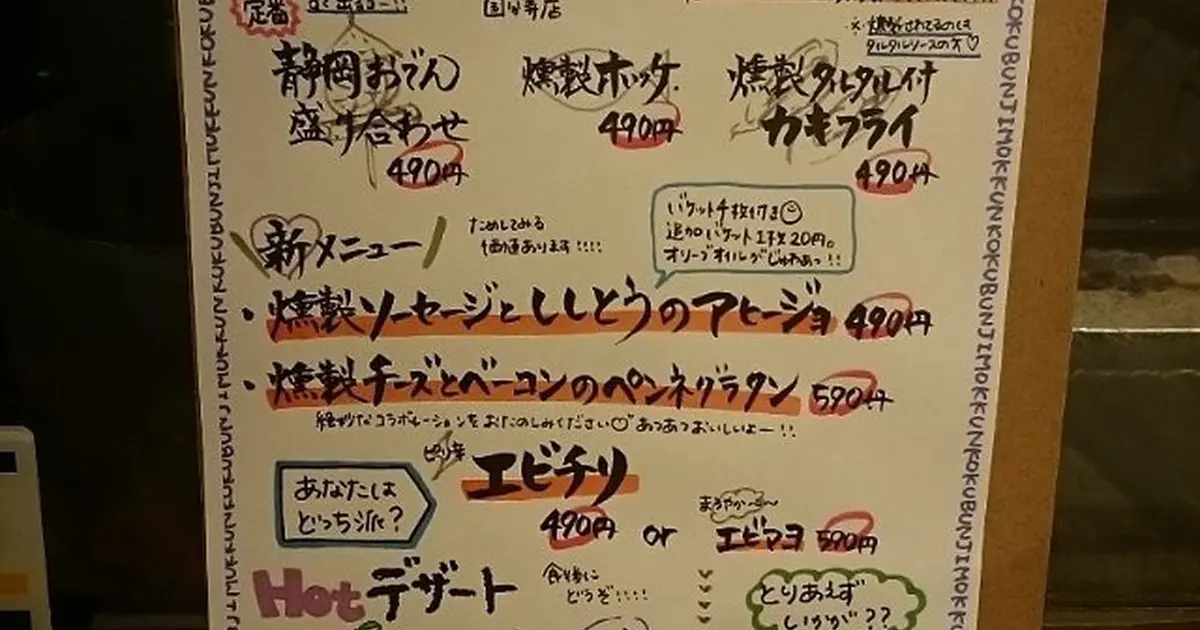 定番
国分寺店
※燻製されてるのは
タルタルソースの方♡
静岡おでん
盛り合わせ
490円
燻製ホッケ
490円
燻製タルタル付
カキフライ
490円
新メニュー
ためしてみる
価値あります!!!!
バケット千枚付き
追加バケット1枚20円。
オリーブオイルがじゅわぁっ!!
・燻製ソーセージとししとうのアヒージョ 490円
・燻製チーズとベーコンのペンネグラタン 590円
絶妙なコラボレーションをおたのしみください♡ あつあつおいしいよー!!
あなたは
どっち派?
ピリ辛
エビチリ
490円
or
まろやか〜
エビマヨ 590円
Hot デザート
食後に
どうぞ!!!!
とりあえず
いかが??
KOKUBUNJIMOKKUNKOKUBUNJIMOKKUNKOKUBUNJIMOKKU